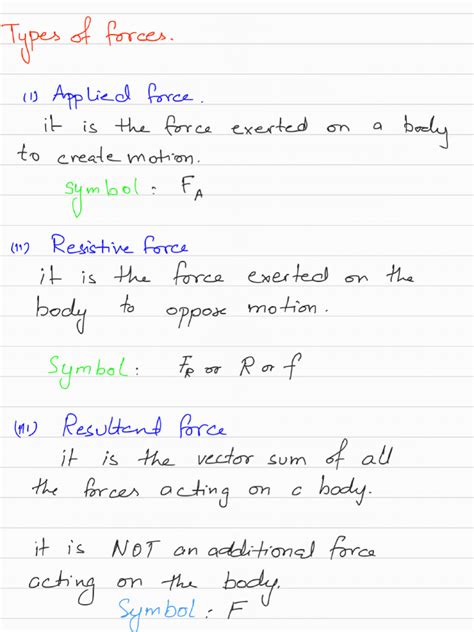 Types of forces.
(i) Applied force.
it is the force exerted on a body
to create motion.
Symbol : F_A
(ii) Resistive force
it is the force exerted on the
body to oppose motion.
Symbol : F_R or R or f
(iii) Resultant force
it is the vector sum of all
the forces acting on a body.
it is NOT an additional force
acting on the body.
Symbol : F